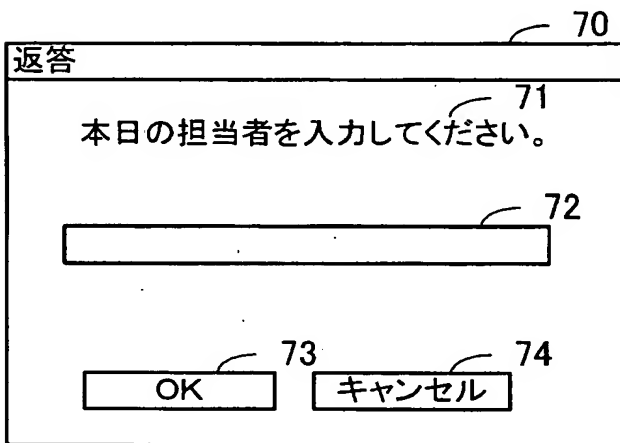 70
返答
71
本日の担当者を入力してください。
72
73 74
OK キャンセル